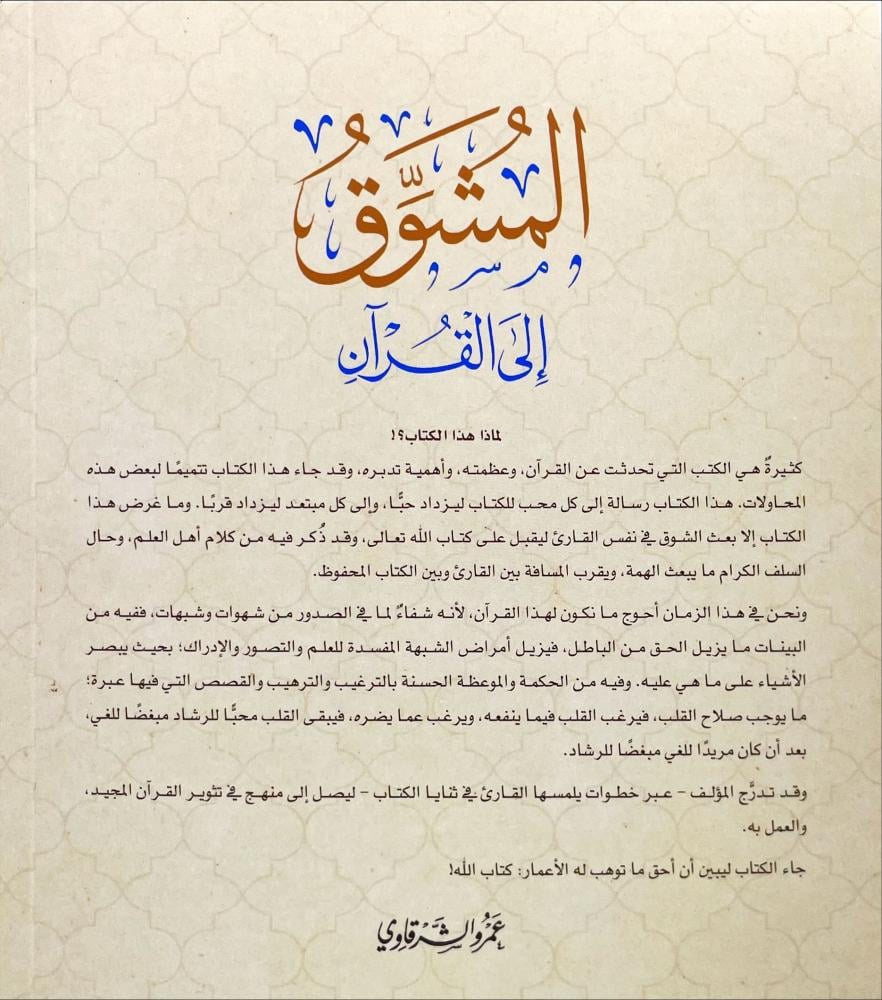 المُشَوَّقُ
إِلَى القُرْآنِ
لماذا هذا الكتاب؟!
كثيرةٌ هي الكتب التي تحدثت عن القرآن، وعظمته، وأهمية تدبره، وقد جاء هذا الكتاب تتميمًا لبعض هذه
المحاولات. هذا الكتاب رسالة إلى كل محب للكتاب ليزداد حبًّا، وإلى كل مبتعد ليزداد قربًا. وما غرض هذا
الكتاب إلا بعث الشوق في نفس القارئ ليقبل على كتاب الله تعالى، وقد ذُكر فيه من كلام أهل العلم، وحال
السلف الكرام ما يبعث الهمة، ويقرب المسافة بين القارئ وبين الكتاب المحفوظ.
ونحن في هذا الزمان أحوج ما نكون لهذا القرآن، لأنه شفاءٌ لما في الصدور من شهوات وشبهات، ففيه من
البينات ما يزيل الحق من الباطل، فيزيل أمراض الشبهة المفسدة للعلم والتصور والإدراك؛ بحيث يبصر
الأشياء على ما هي عليه. وفيه من الحكمة والموعظة الحسنة بالترغيب والترهيب والقصص التي فيها عبرة؛
ما يوجب صلاح القلب، فيرغب القلب فيما ينفعه، ويرغب عما يضره، فيبقى القلب محبًّا للرشاد مبغضًا للغي،
بعد أن كان مريدًا للغي مبغضًا للرشاد.
وقد تدرَّج المؤلف - عبر خطوات يلمسها القارئ في ثنايا الكتاب - ليصل إلى منهج في تثوير القرآن المجيد،
والعمل به.
جاء الكتاب ليبين أن أحق ما توهب له الأعمار: كتاب الله!
عَمْرُو الشَّرْقَاوِي